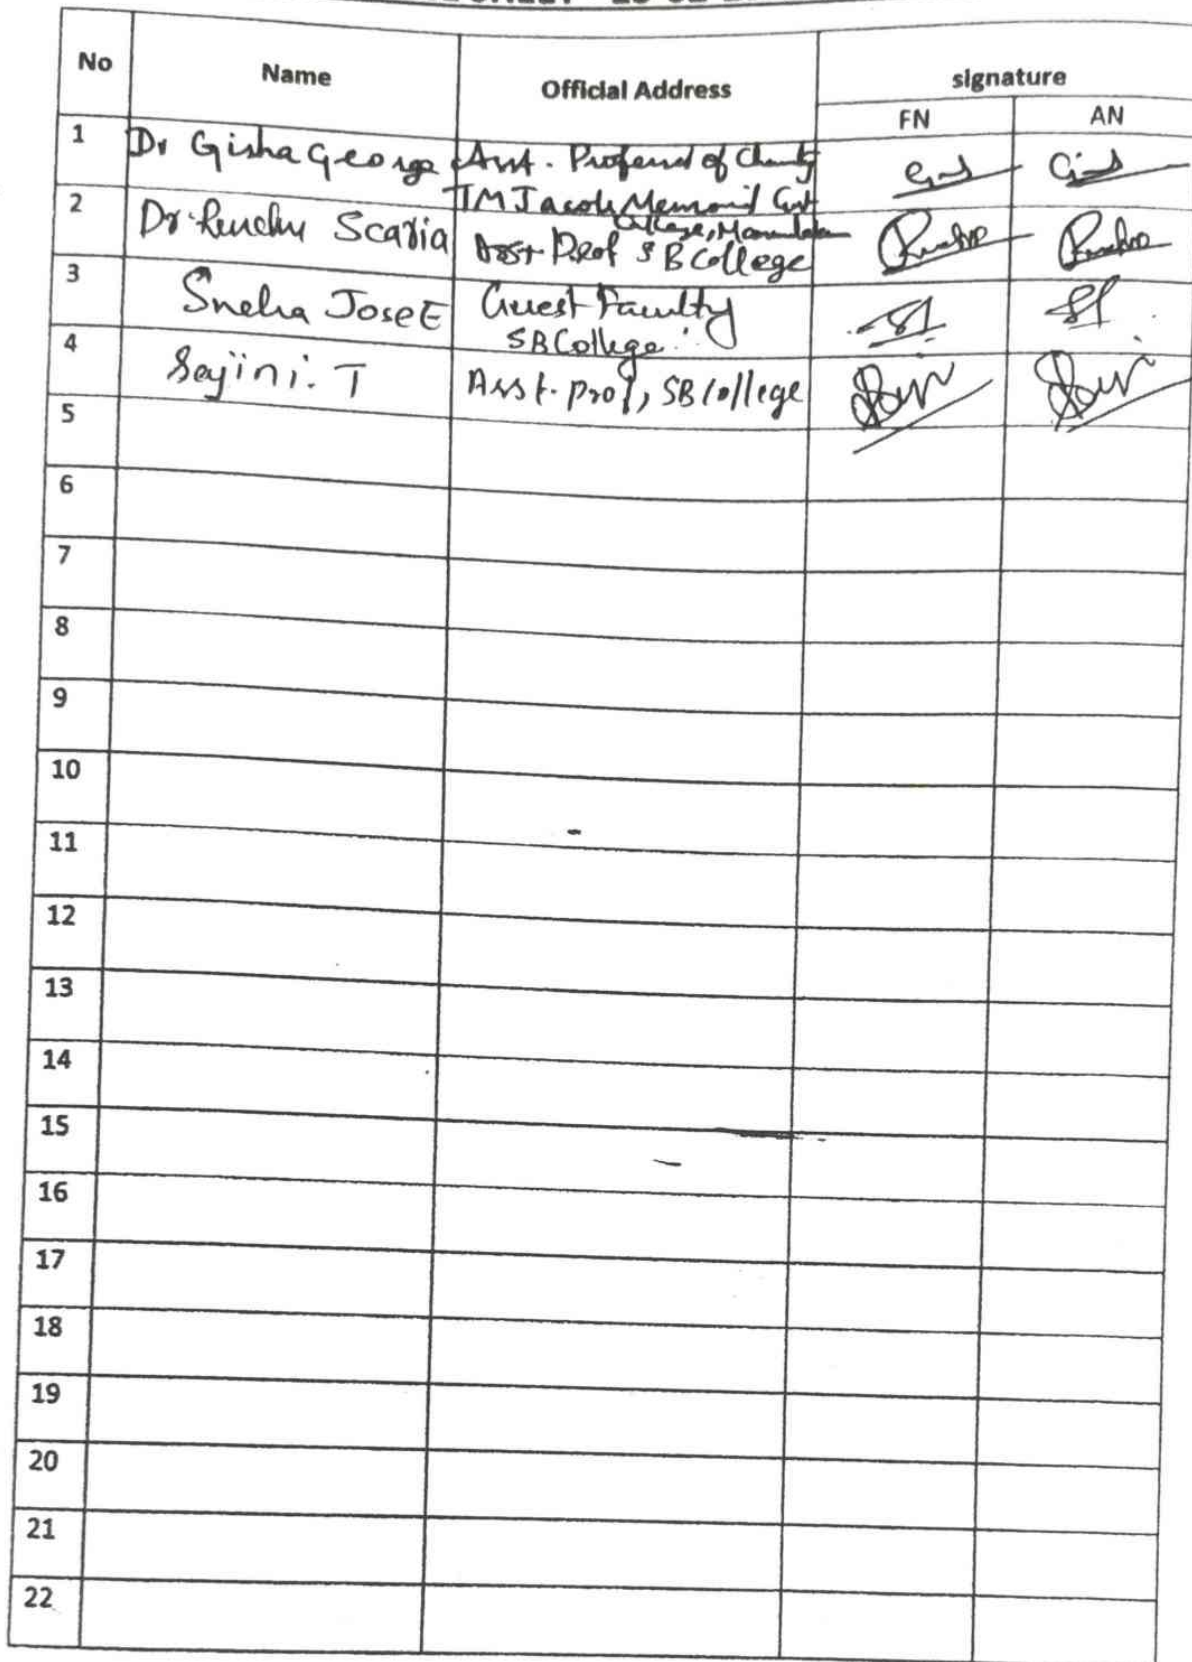 No Name Official Address signature
FN AN
1 Dr Gisha George Asst. Professor of Chemistry
TM Jacob Memorial Govt
College,
2 Dr. Renchu Scaria Asst Prof SB College
3 Sneha Jose E Guest Faculty
SB College
4 Sajini. T Asst. prof, SB College
5
6
7
8
9
10
11
12
13
14
15
16
17
18
19
20
21
22